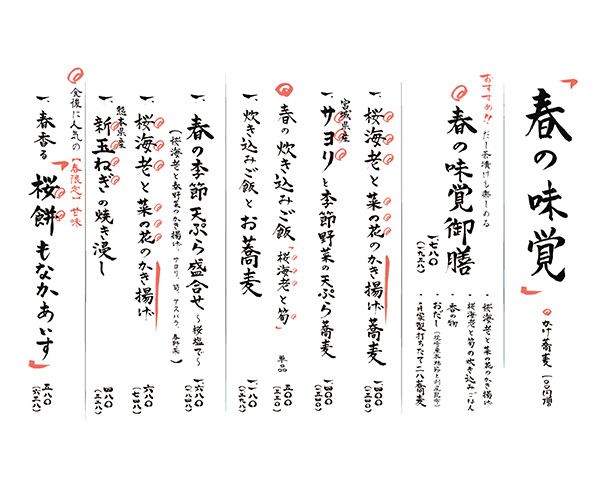 「春の味覚」
かけ蕎麦 一〇〇円増
おすすめ!! だし茶漬けも楽しめる
春の味覚御膳
一七八〇
(一九五八)
・桜海老と菜の花のかき揚げ
・桜海老と筍の炊き込みごはん
・香の物
・おだし
・自家製打ちたて二八蕎麦
一、桜海老と菜の花のかき揚げ蕎麦
一四〇〇
(一五四〇)
宮城県産
一、サヨリと季節野菜の天ぷら蕎麦
一四〇〇
(一五四〇)
春の炊き込みご飯「桜海老と筍」
単品
五〇〇
(五五〇)
一、炊き込みご飯とお蕎麦
一、春の季節天ぷら盛合せ 〜桜塩で〜
(桜海老と春野菜のかき揚げ、サヨリ、筍、アスパラ、春野菜)
一、桜海老と菜の花のかき揚げ
六八〇
(七四八)
熊本県産
一、新玉ねぎの焼き浸し
四八〇
(五二八)
食後に人気の【春限定】甘味
一、春香る「桜餅もなかあいす」
五八〇
(六三八)